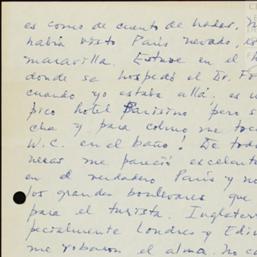 es como de cuento de hadas.
había visto París nevado, es
maravilla. Estuve en el
donde se hospedó el Dr. Fr
cuando yo estaba allá. es u
pico hotel Parisino pero s
cha y para colmo me toc
W.C. en el baño! De tod
neras me pareció excelent
en el verdadero París y no
los grandes boulevares que
para el turista. Inglater
pecialmente Londres y Edim
me robaron el alma. no ca